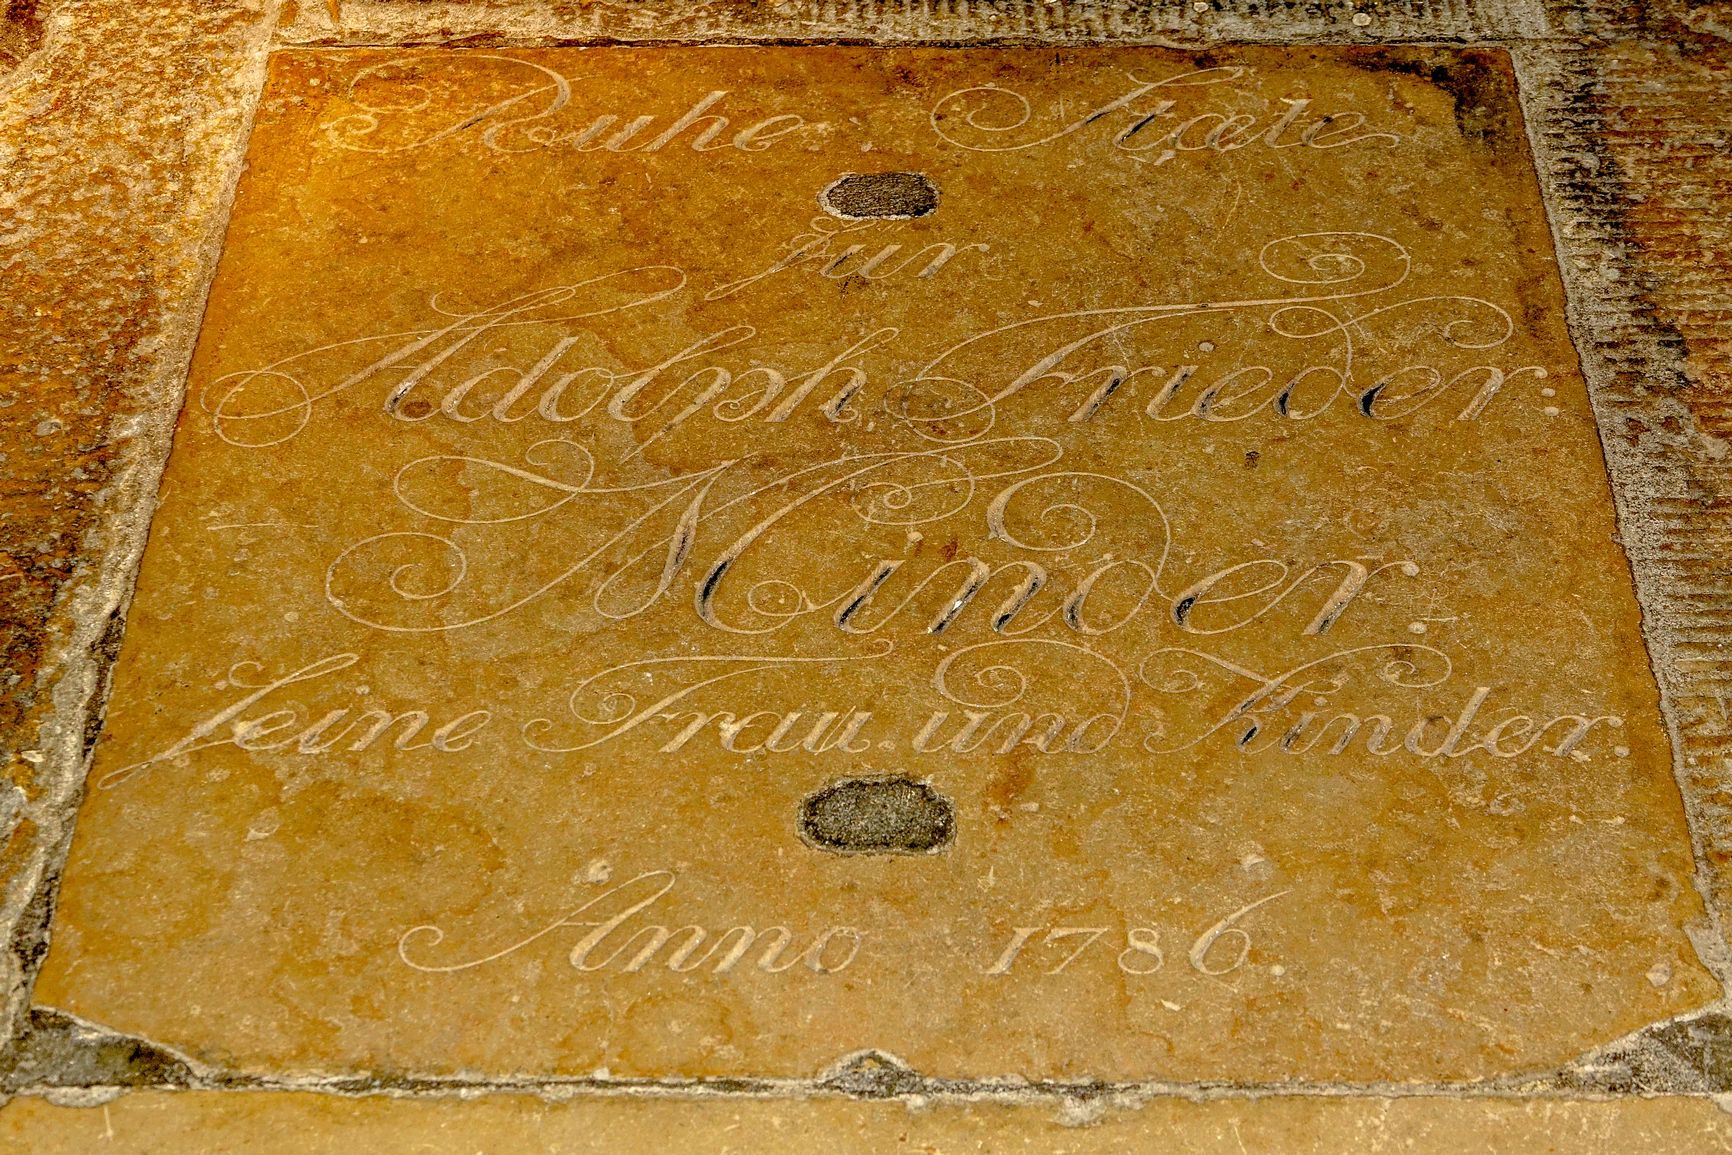 Ruhe Stæte
für
Adolph Frieder:
Minder.
seine Frau und Kinder.
Anno 1786.